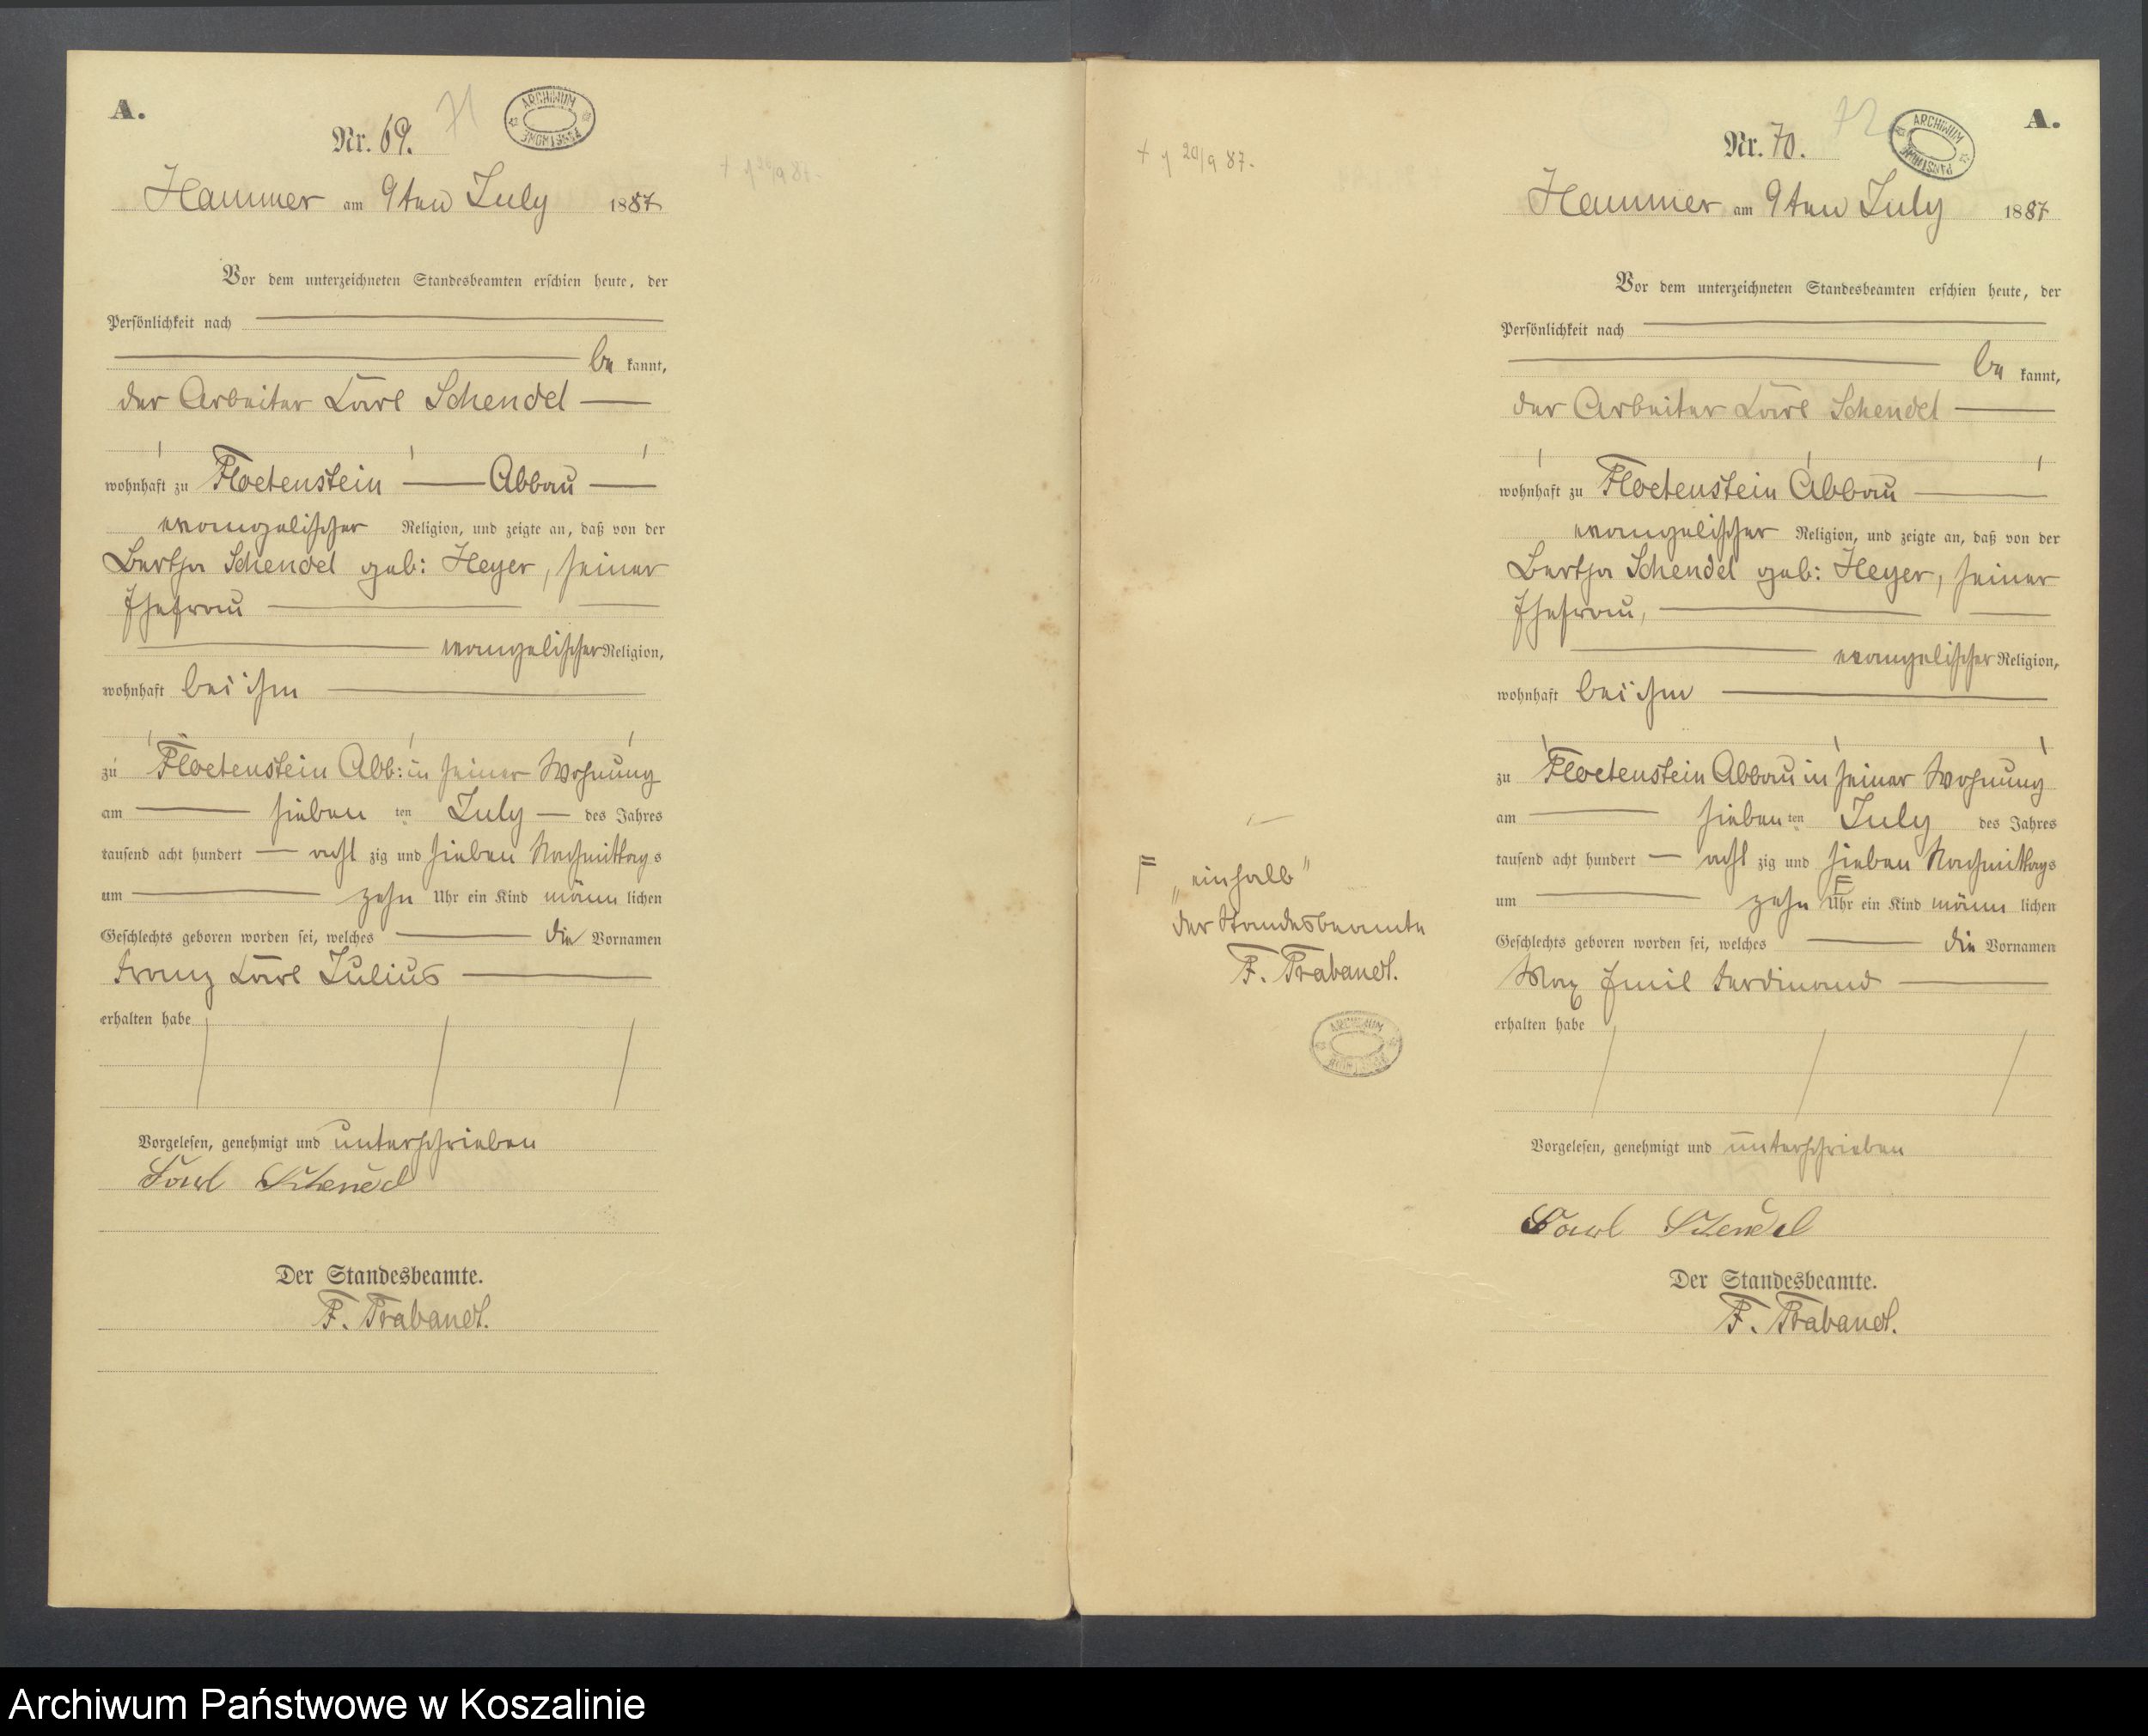 A.
Nr. 69.
71
ARCHIWUM PAŃSTWOWE
Hammer am 9ten July 1887
Vor dem unterzeichneten Standesbeamten erschien heute, der
Persönlichkeit nach
be kannt,
der Arbeiter Karl Schendel
wohnhaft zu Floetenstein Abbau
evangelischer Religion, und zeigte an, daß von der
Bertha Schendel geb: Heyer, seiner
Ehefrau
evangelischer Religion,
wohnhaft bei ihm
zu Floetenstein Abb: in seiner Wohnung
am sieben ten July des Jahres
tausend acht hundert acht zig und sieben Nachmittags
um zehn Uhr ein Kind männ lichen
Geschlechts geboren worden sei, welches die Vornamen
Franz Karl Julius
erhalten habe
Vorgelesen, genehmigt und unterschrieben
Karl Schendel
Der Standesbeamte.
F. Trabandt.
20/9 87.
F „einhalb"
der Standesbeamte
F. Trabandt.
ARCHIWUM
A.
Nr. 70.
72
ARCHIWUM PAŃSTWOWE
Hammer am 9ten July 1887
Vor dem unterzeichneten Standesbeamten erschien heute, der
Persönlichkeit nach
be kannt,
der Arbeiter Karl Schendel
wohnhaft zu Floetenstein Abbau
evangelischer Religion, und zeigte an, daß von der
Bertha Schendel geb: Heyer, seiner
Ehefrau,
evangelischer Religion,
wohnhaft bei ihm
zu Floetenstein Abbau in seiner Wohnung
am sieben ten July des Jahres
tausend acht hundert acht zig und sieben Nachmittags
um zehn F Uhr ein Kind männ lichen
Geschlechts geboren worden sei, welches die Vornamen
Max Emil Ferdinand
erhalten habe
Vorgelesen, genehmigt und unterschrieben
Karl Schendel
Der Standesbeamte.
F. Trabandt.
Archiwum Państwowe w Koszalinie